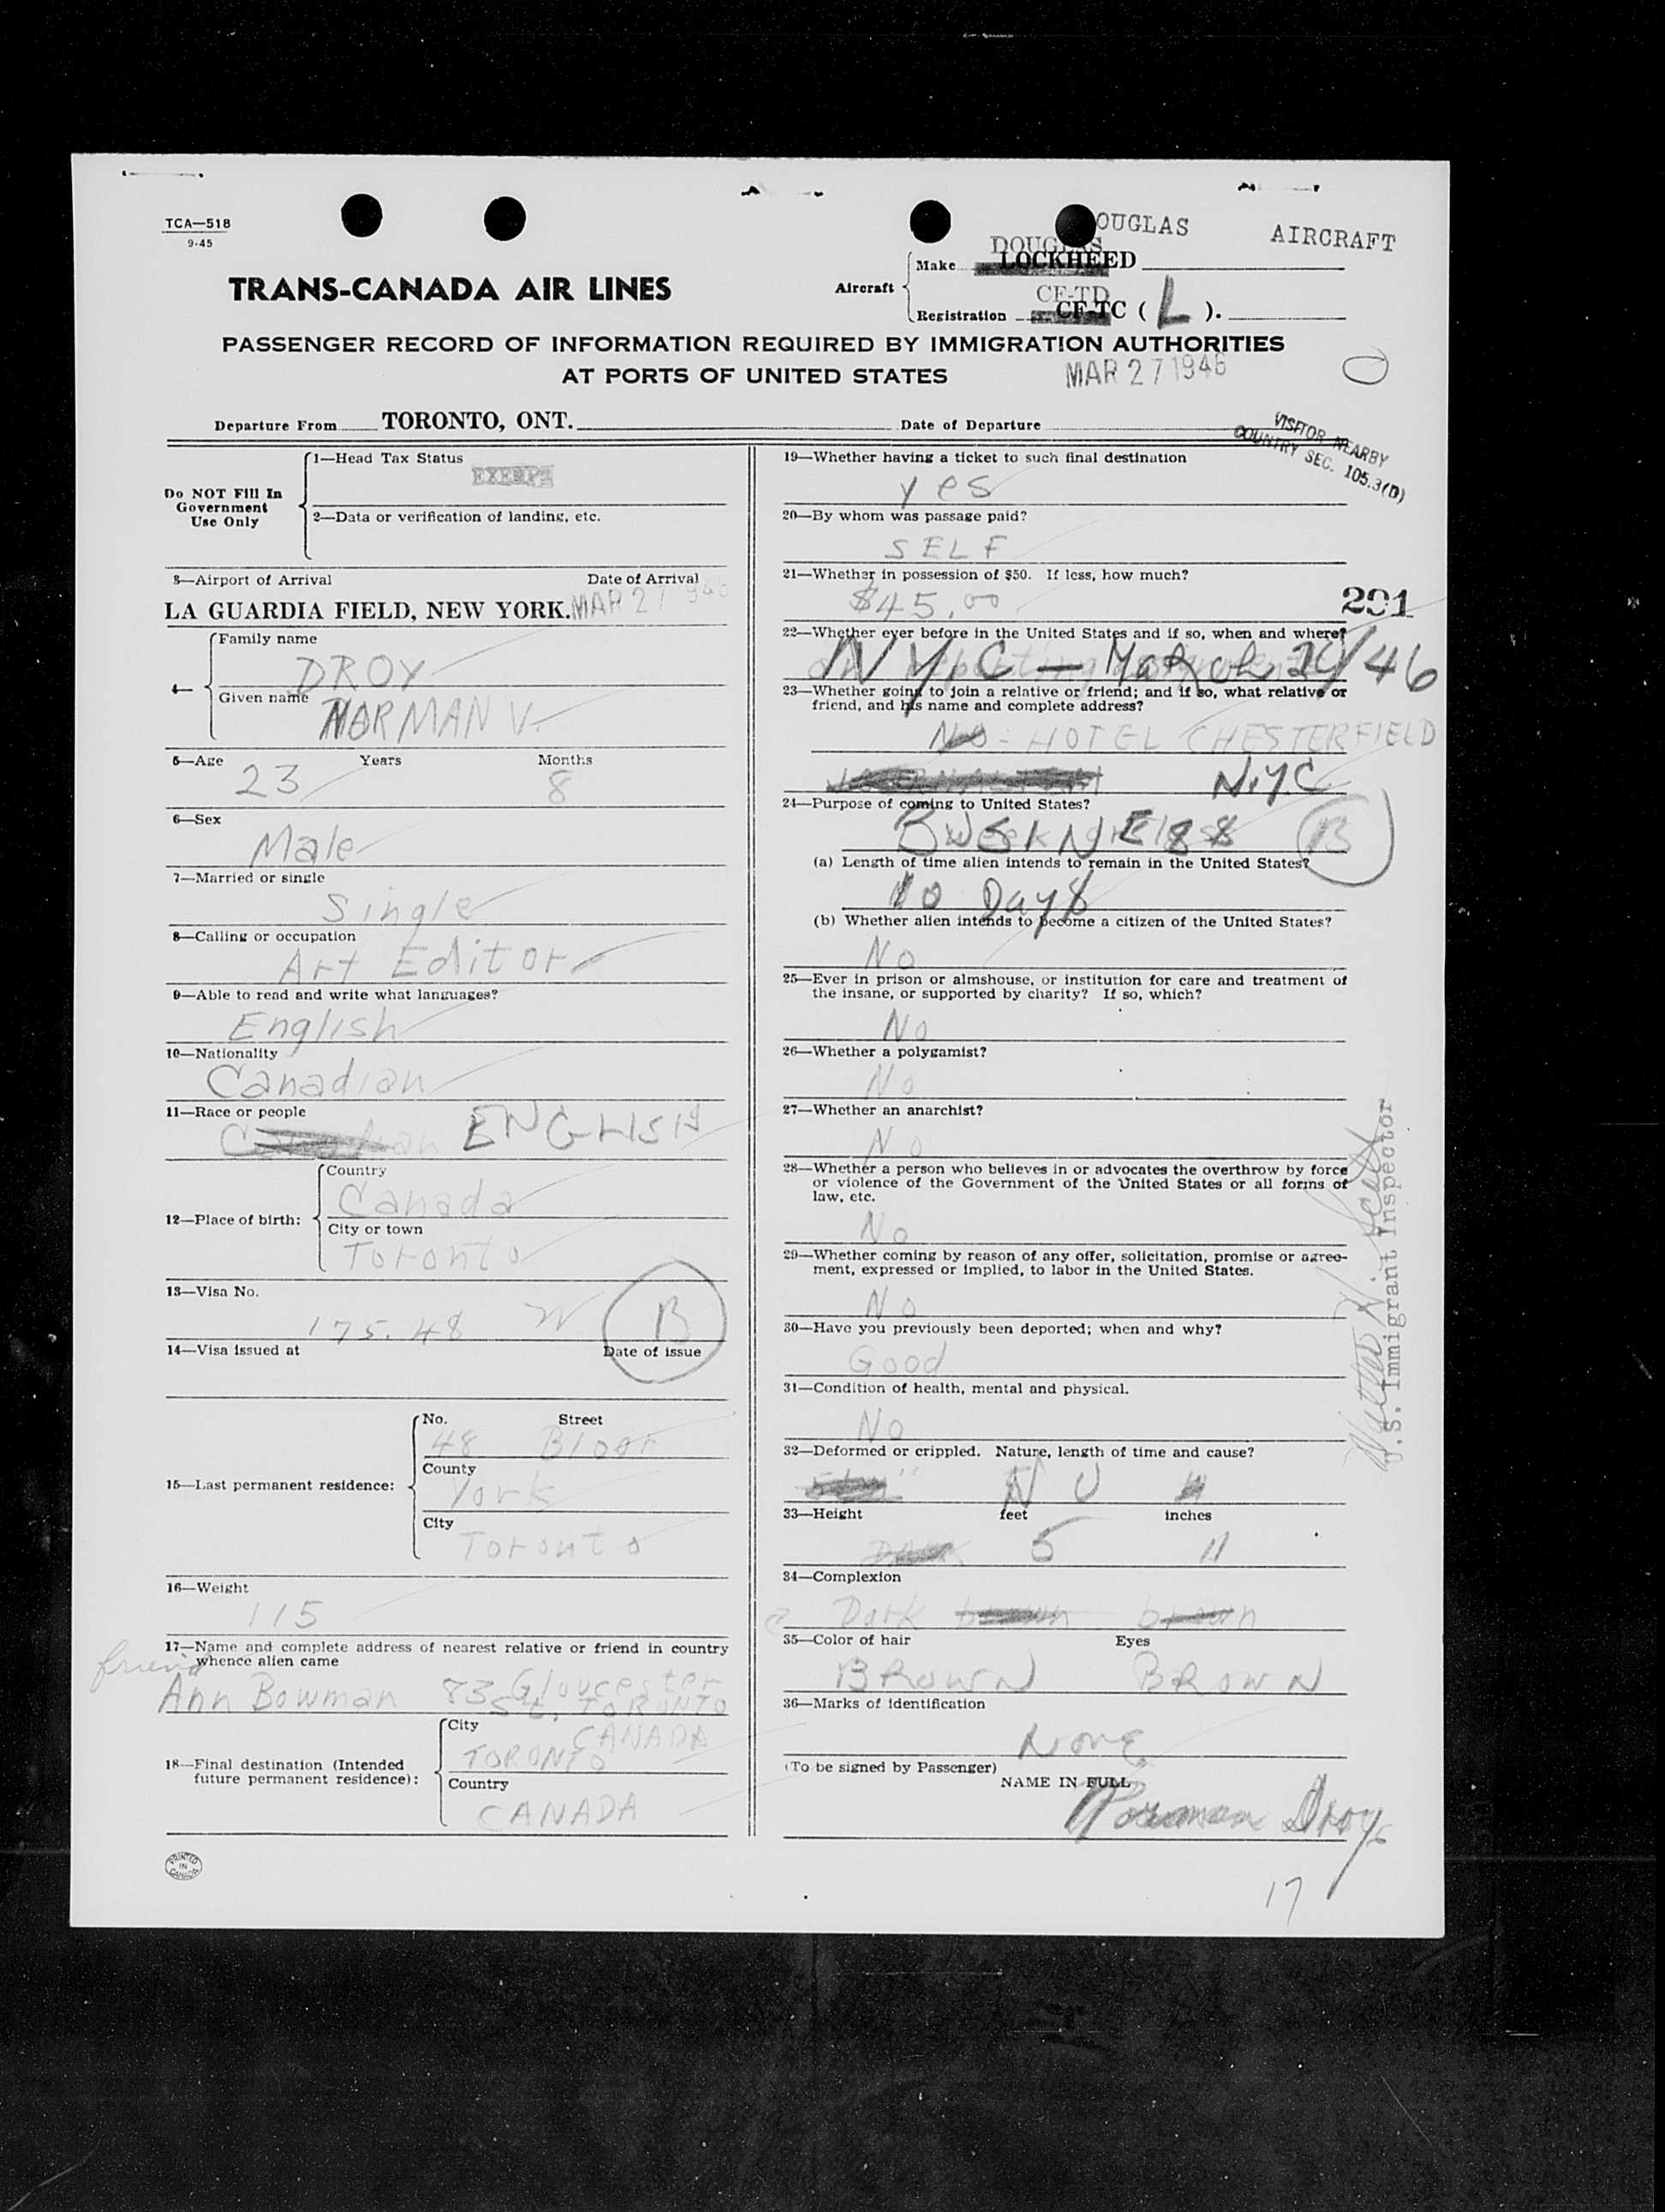 TCA—518
9-45
DOUGLAS AIRCRAFT
TRANS-CANADA AIR LINES
Aircraft
Make DOUGLAS LOCKHEED
Registration CF-TD CF-TC ( L ).
PASSENGER RECORD OF INFORMATION REQUIRED BY IMMIGRATION AUTHORITIES
AT PORTS OF UNITED STATES
MAR 27 1946
Departure From TORONTO, ONT.
Date of Departure
VISITOR NEARBY
COUNTRY SEC. 105.3(D)
Do NOT Fill In
Government
Use Only
1—Head Tax Status
EXEMPT
2—Data or verification of landing, etc.
3—Airport of Arrival Date of Arrival
LA GUARDIA FIELD, NEW YORK. MAR 27 946
4—
Family name
DROY
Given name
NORMAN V.
5—Age Years Months
23 8
6—Sex
Male
7—Married or single
Single
8—Calling or occupation
Art Editor
9—Able to read and write what languages?
English
10—Nationality
Canadian
11—Race or people
ENGLISH
12—Place of birth:
Country
Canada
City or town
Toronto
13—Visa No.
175.48 B
14—Visa issued at Date of issue
15—Last permanent residence:
No. Street
48 Bloor
County
York
City
Toronto
16—Weight
115
17—Name and complete address of nearest relative or friend in country
whence alien came
friend
Ann Bowman 83 Gloucester
St. TORONTO
CANADA
18—Final destination (Intended
future permanent residence):
City
TORONTO
Country
CANADA
PRINTED
IN
CANADA
19—Whether having a ticket to such final destination
yes
20—By whom was passage paid?
SELF
21—Whether in possession of $50. If less, how much?
$45.00
291
22—Whether ever before in the United States and if so, when and where?
NYC — March /46
23—Whether going to join a relative or friend; and if so, what relative or
friend, and his name and complete address?
No - HOTEL CHESTERFIELD
N.Y.C
24—Purpose of coming to United States?
B
(a) Length of time alien intends to remain in the United States?
10 Days
(b) Whether alien intends to become a citizen of the United States?
No
25—Ever in prison or almshouse, or institution for care and treatment of
the insane, or supported by charity? If so, which?
No
26—Whether a polygamist?
No
27—Whether an anarchist?
No
28—Whether a person who believes in or advocates the overthrow by force
or violence of the Government of the United States or all forms of
law, etc.
No
29—Whether coming by reason of any offer, solicitation, promise or agree-
ment, expressed or implied, to labor in the United States.
No
30—Have you previously been deported; when and why?
Good
31—Condition of health, mental and physical.
No
32—Deformed or crippled. Nature, length of time and cause?
33—Height feet inches
5 11
34—Complexion
Dark brown brown
35—Color of hair Eyes
BROWN BROWN
36—Marks of identification
NONE
(To be signed by Passenger)
NAME IN FULL
Norman Droy
17
U.S. Immigrant Inspector